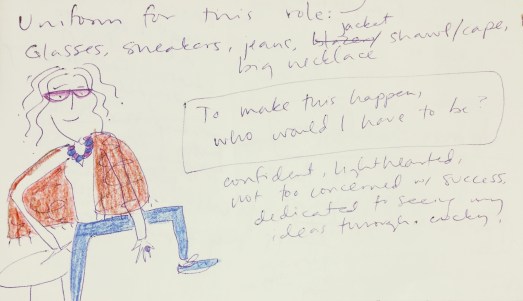 Uniform for this role:
jacket
Glasses, sneakers, jeans, blazer shawl/cape,
big necklace
To make this happen,
who would I have to be?
confident, lighthearted,
not too concerned w/ success,
dedicated to seeing my
ideas through.